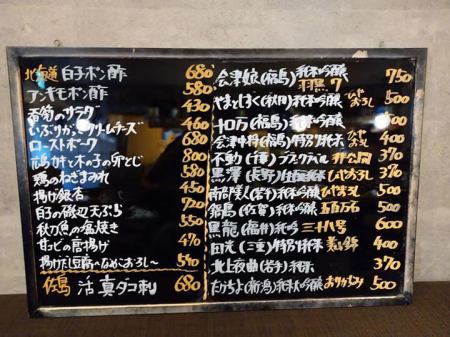 北海道 白子ポン酢 680
アンキモポン酢 580
香箱のサラダ 430
いぶりがっこクリームチーズ 460
ローストポーク 800
鶏のねぎまみれ 580
揚げ銀杏 450
白子の磯辺天ぷら 720
秋刀魚の塩焼き 550
甘エビの唐揚げ 470
揚げだし豆腐〜なめこおろし〜 540
佐島 活 真タコ刺 680
会津娘(福島)純米吟醸 羽黒 750
やまとしずく(秋田)純米吟醸 ひやおろし 500
十ロ万(福島)純米吟醸 500
会津中将(福島)特別純米 ひやおろし 400
不動(千葉) 非公開 370
黒澤(長野) ひやおろし 370
南部美人(岩手)純米吟醸 ひやおろし 500
鍋島(佐賀)純米吟醸 五百万石 500
黒龍(福井)純吟 三十八号 600
田光(三重)特別純米 雄山錦 400
北上夜曲(岩手)純米 370
たかちよ(新潟)純米吟醸 おりがらみ 500